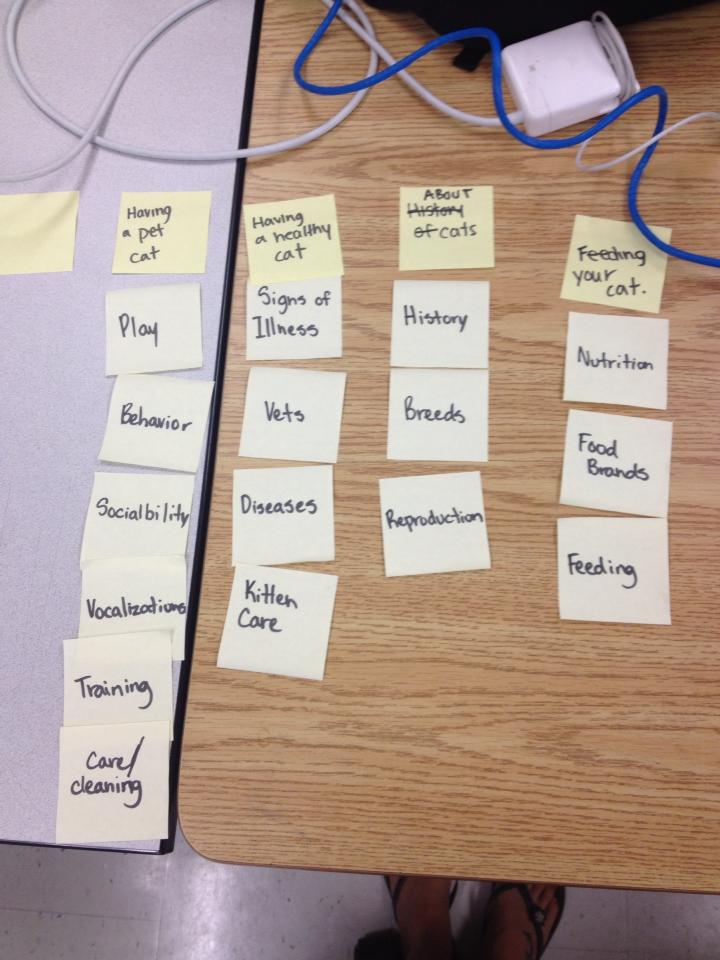 Having
a pet
cat
Play
Behavior
Socialbility
Vocalizations
Training
Care/
cleaning
Having
a healthy
cat
Signs of
Illness
Vets
Diseases
Kitten
Care
ABOUT
History
of cats
History
Breeds
Reproduction
Feeding
your
cat.
Nutrition
Food
Brands
Feeding